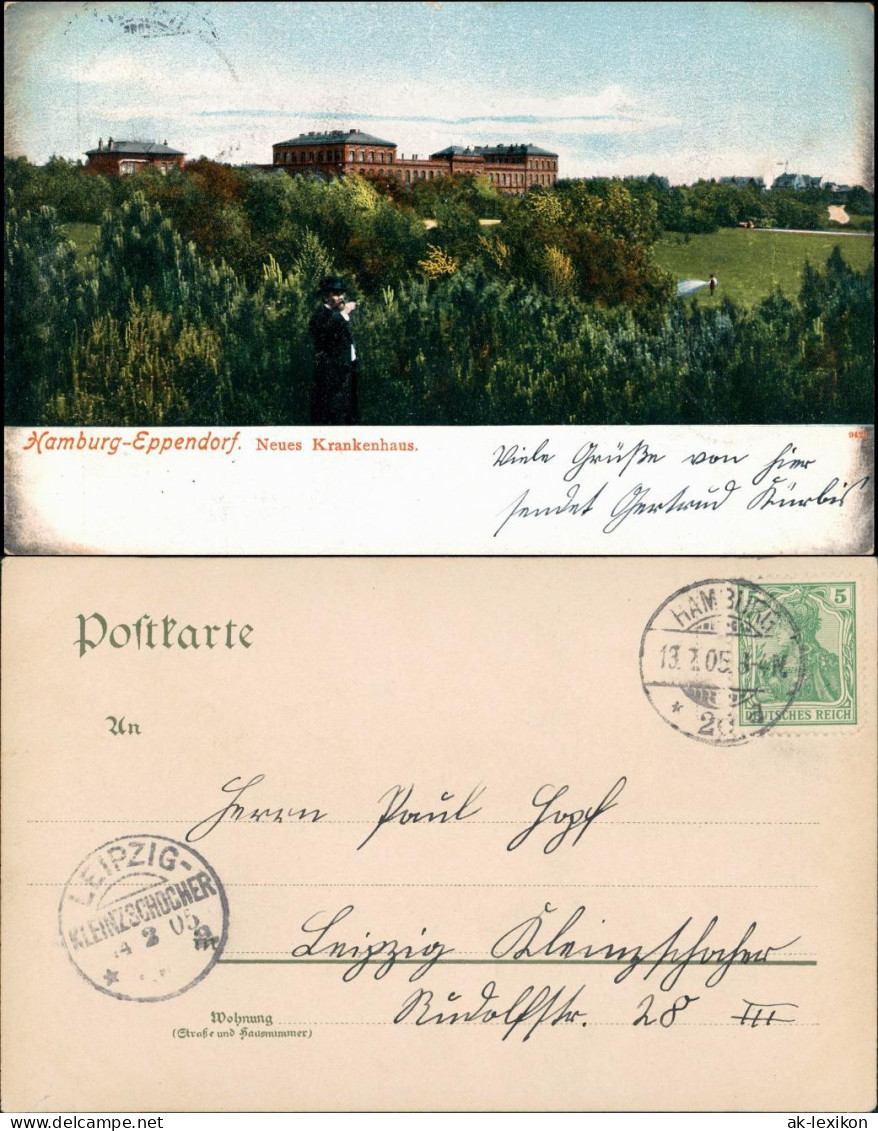 Hamburg-Eppendorf. Neues Krankenhaus.
Viele Grüße von hier
sendet Gertrud Kürbis
Postkarte
HAMBURG
13.2.05. 3-4N.
* 20
5
DEUTSCHES REICH
An
Herrn Paul Hopf
LEIPZIG-
KLEINZSCHOCHER
14 2 05
in
Leipzig Kleinzschocher
Wohnung
(Straße und Hausnummer)
Rudolfstr. 28 III
ak-lexikon